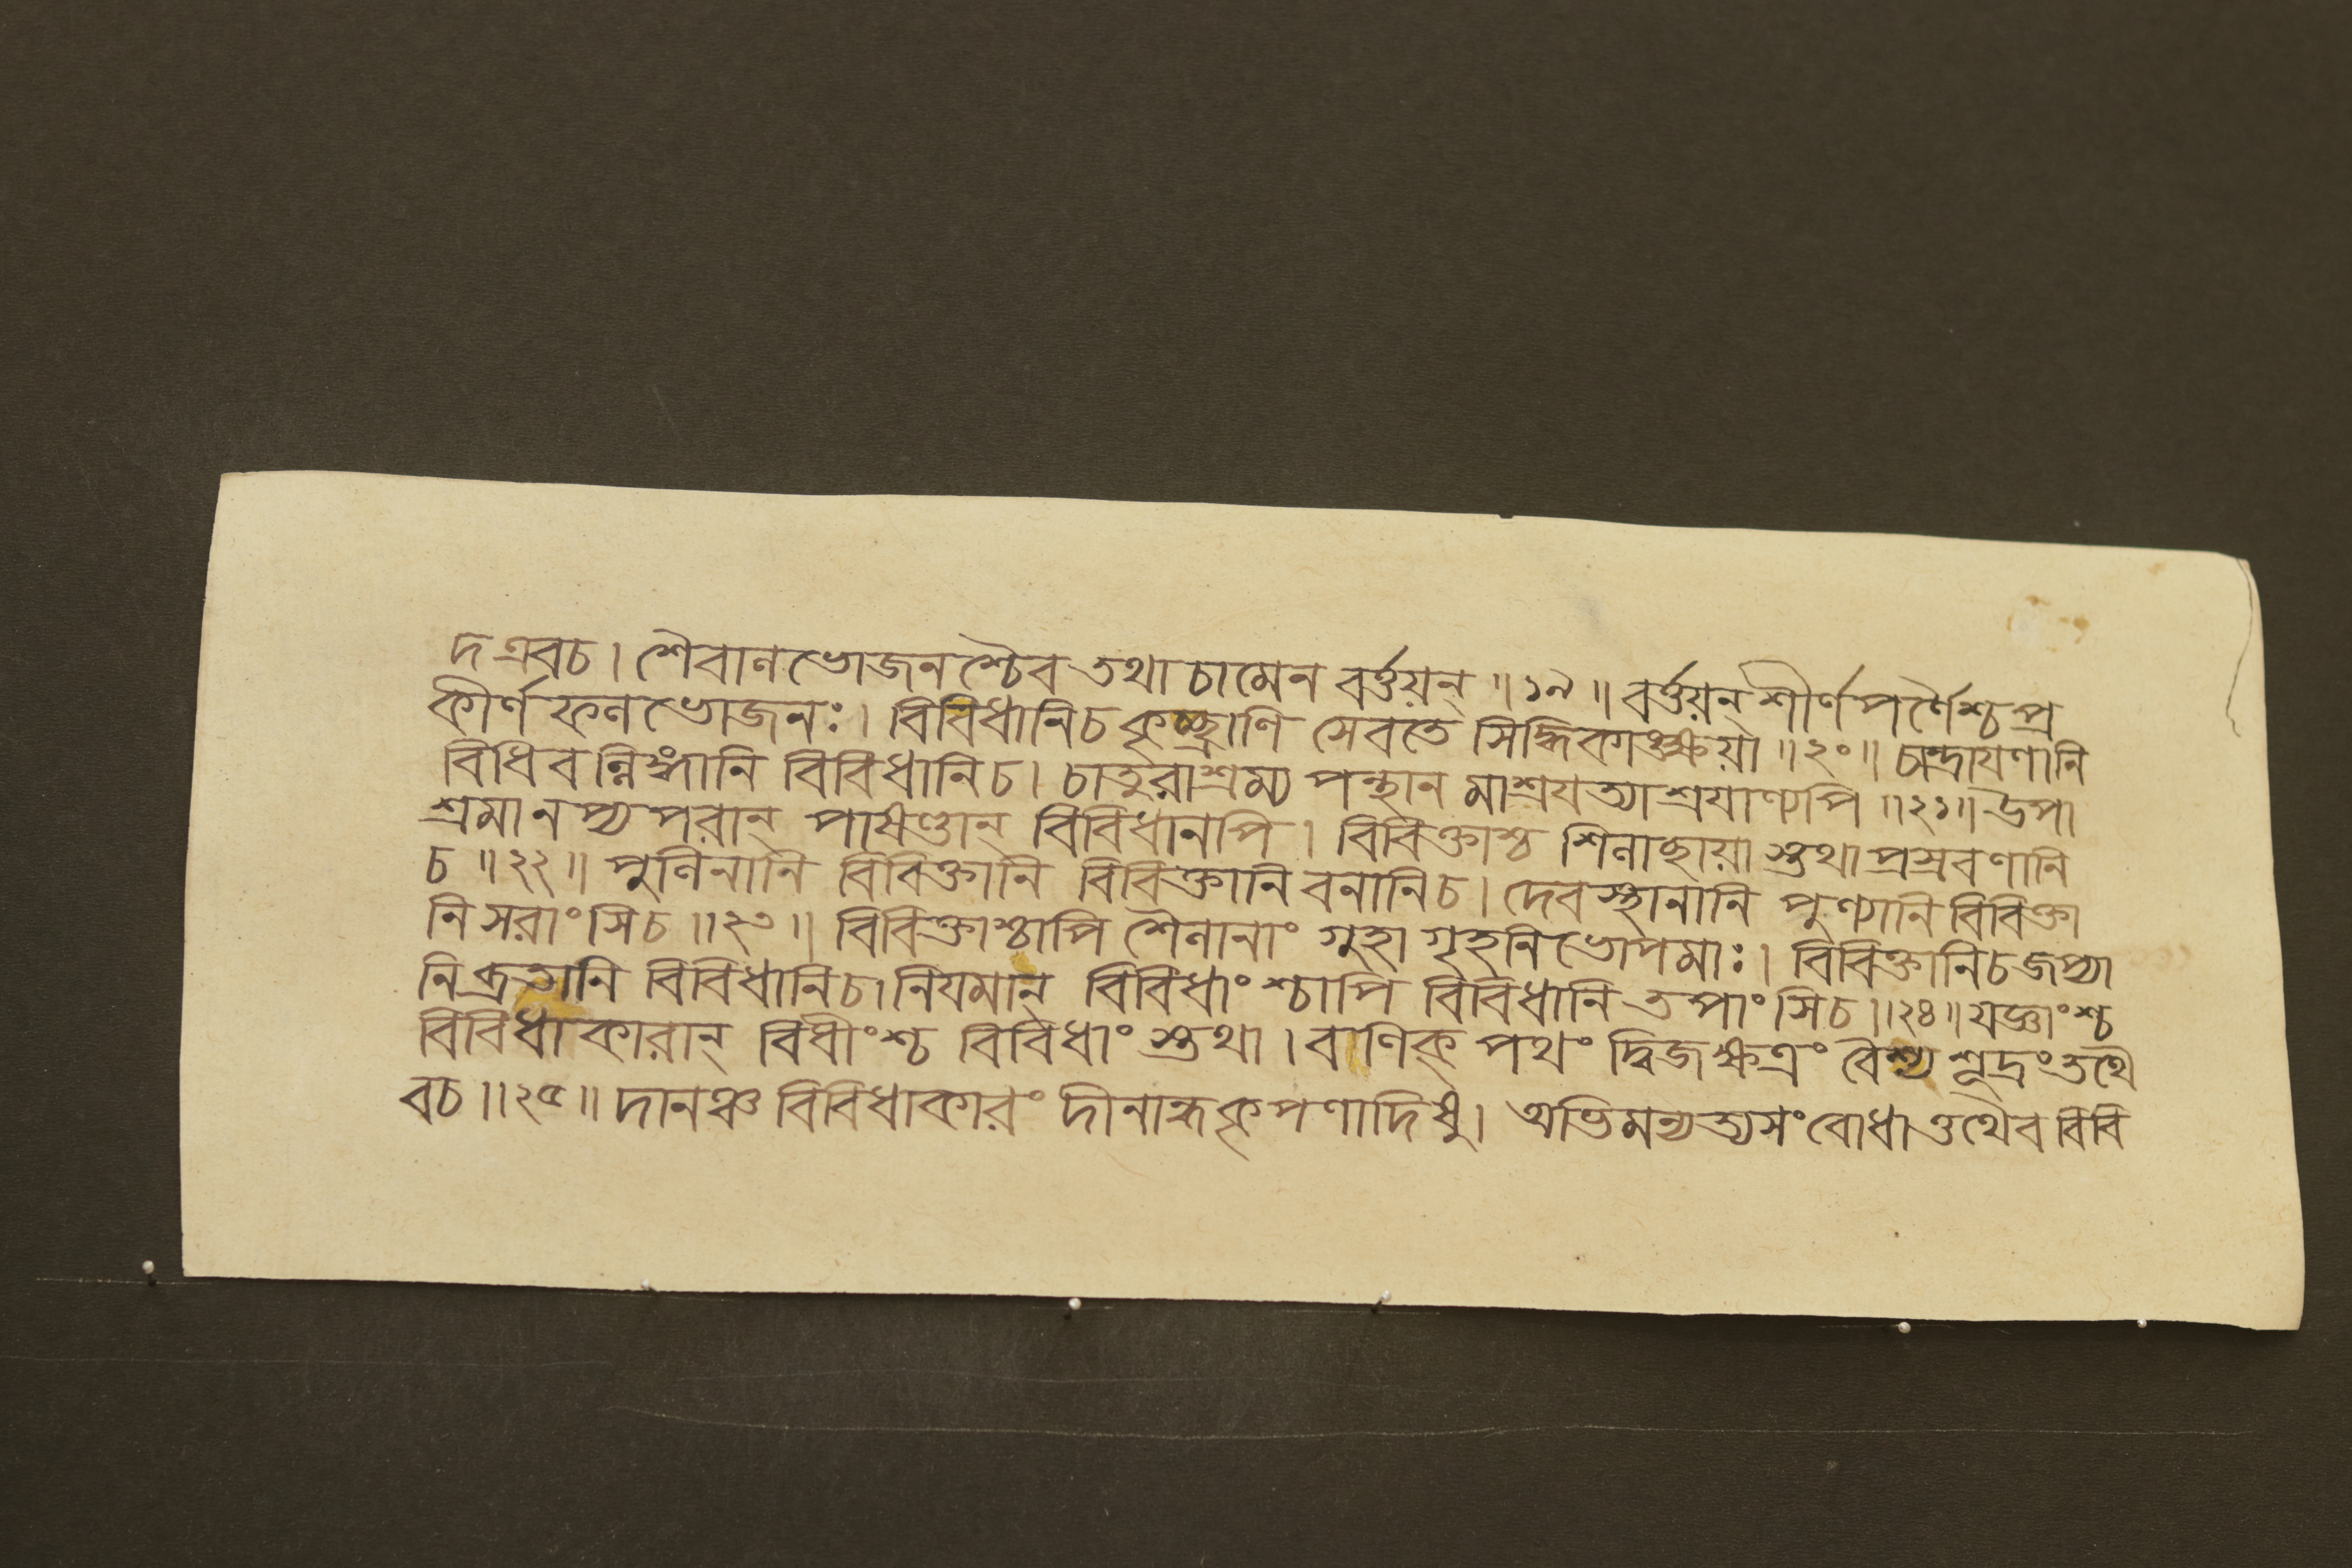 দ এবচ। শৈবাণ ভোজনশ্চৈব তথা চামেন বর্ত্তয়ন্ ॥১৯॥ বর্ত্তয়ন্ শীর্ণ পর্ণৈশ্চ প্র
কীর্ণ ফণ ভোজনঃ। বিবিধানিচ কৃচ্ছ্রাণি সেবতে সিদ্ধিকাঙ্ক্ষয়া ॥২০॥ চান্দ্রাযণানি
বিধিবন্নিঙ্গানি বিবিধানিচ। চাতুরাশ্রম্য পন্থান মাশ্রযত্যাশ্রযাণ্যপি ॥২১॥ উপা
শ্রমানপ্যপরান্ পাষণ্ডান্ বিবিধানপি। বিবিক্তাশ্চ শিণাছায়া স্তথা প্রস্রবণানি
চ ॥২২॥ পুণিনানি বিবিক্তানি বিবিক্তানি বনানিচ। দেবস্থানানি পুণ্যানি বিবিক্তা
নি সরাংসিচ ॥২৩॥ বিবিক্তাশ্চাপি শৈণানাং গুহা গৃহনিভোপমাঃ। বিবিক্তানিচ জপ্যা
নি ব্রতানি বিবিধানিচ। নিযমান্ বিবিধাংশ্চাপি বিবিধানি তপাংসিচ ॥২৪॥ যজ্ঞাংশ্চ
বিবিধাকারান্ বিধীংশ্চ বিবিধাংস্তথা। বাণিক্ পথং দ্বিজক্ষত্রং বৈশ্য শূদ্রং তথৈ
বচ ॥২৫॥ দানঞ্চ বিবিধাকারং দীনান্ধকৃপণাদিষু। অভিমন্যত্যসংবোধা ত্তথৈব বিবি